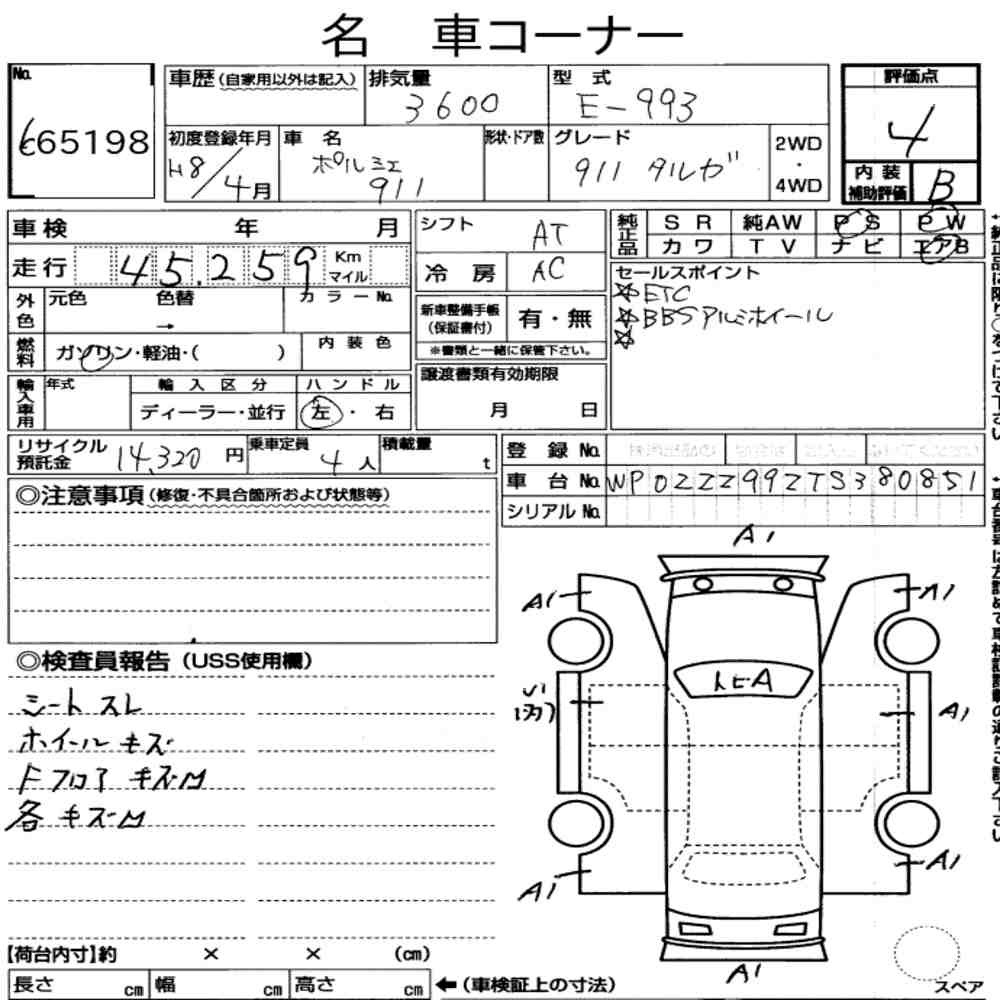 名 車コーナー
No. 665198
車歴(自家用以外は記入)
排気量 3600
型式 E-993
評価点 4
初度登録年月 H8/4月
車名 ポルシェ 911
形状・ドア数
グレード 911 タルガ
2WD・4WD
内装補助評価 B
車検 年 月
走行 45.259 Km マイル
シフト AT
冷房 AC
純正品 SR 純AW PS PW
カワ TV ナビ エアB
外色 元色 色替 → カラーNo.
燃料 ガソリン・軽油・( ) 内装色
新車整備手帳(保証書付) 有・無
※書類と一緒に保管下さい。
セールスポイント
☆ETC
☆BBSアルミホイール
☆
輸入車用 年式 輸入区分 ハンドル
ディーラー・並行 左・右
譲渡書類有効期限
月 日
リサイクル預託金 14,320円
乗車定員 4人
積載量 t
登録No.
車台No. WP0ZZZ99ZTS380851
シリアルNo.
◎注意事項(修復・不具合箇所および状態等)
◎検査員報告(USS使用欄)
シートスレ
ホイールキズ
Fフロアキズ〃
各キズ〃
A1
A1
A1
トビA
A1
A1
A1
A1
【荷台内寸】約 × × (cm)
長さ cm 幅 cm 高さ cm ←(車検証上の寸法)
スペア